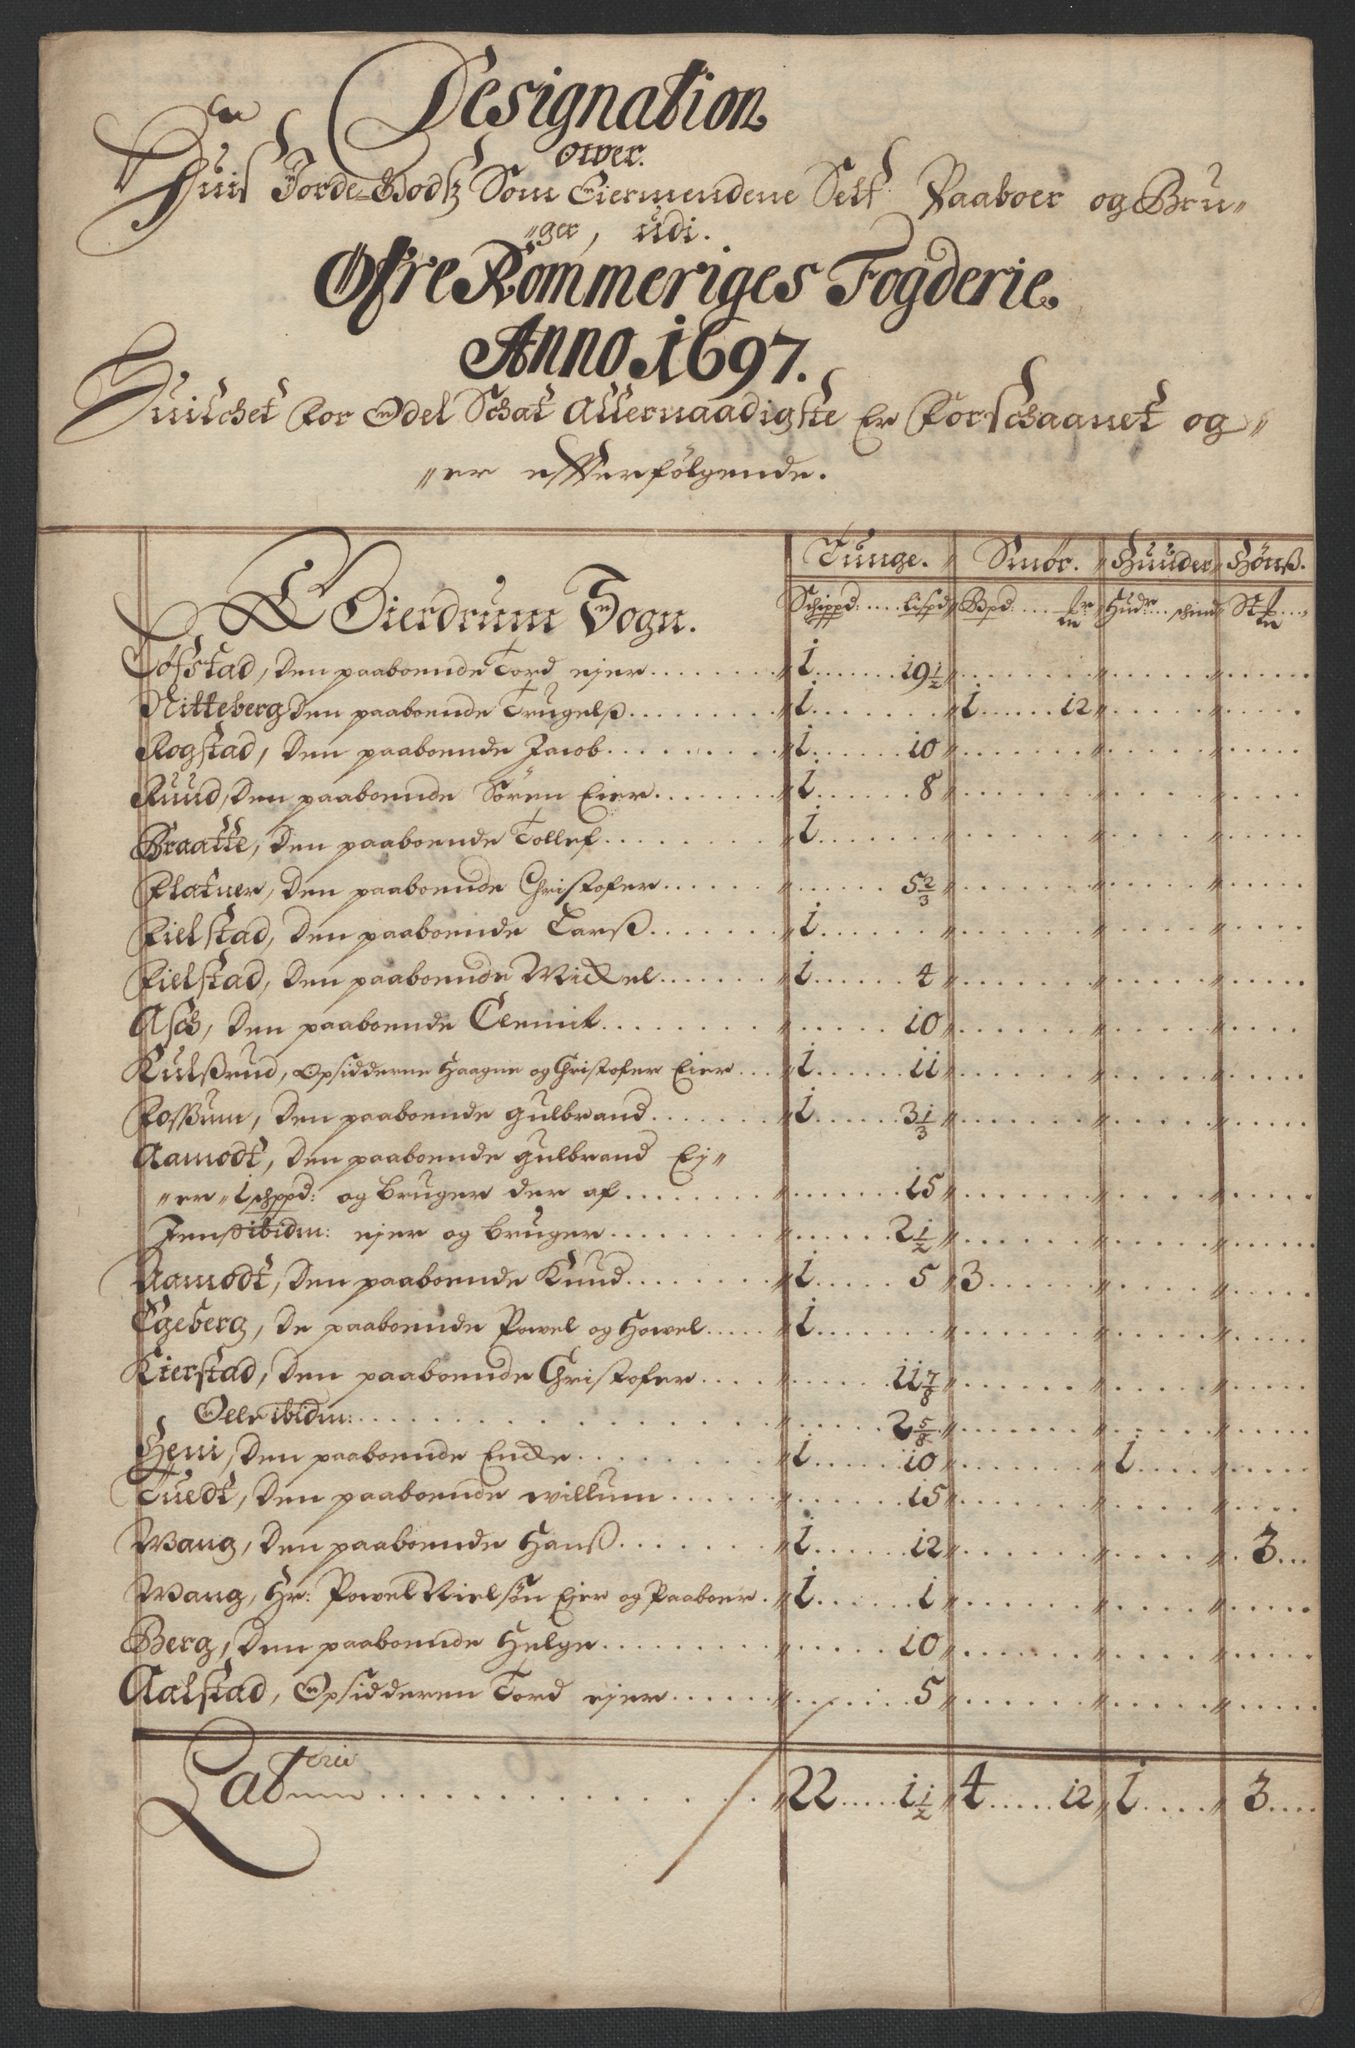 Designation
over.
Huis Jorde-Godtz Som Eiermendene Self Paaboer og Bru„
„ger, udi.
Øfre Rommeriges Fogderie.
Anno 1697.
Huilchet for Odel Schat Allernaadigste Er Forschaanet og„
„er effterfølgende.
Tunge. Smør. Huuder Hønß.
Gierdrum Sogn. Schippd: Lispd Bpd: Hudr: schind St
Løfstad, den paaboende Tord ejer 1 19 1/2
Nitteberg den paaboende Trugelß 1 1 12
Rogstad, den paaboende Jacob 1 10
Ruud, den paaboende Søren Eier 1 8
Braatte, den paaboende Tollef 1
Flatner, den paaboende Christofer 5 2/3
Fielstad, den paaboende Larß 1
Fielstad, den paaboende Mickel 1 4
Asch, den paaboende Clemit 10
Kulßrud, Opsidderne Haagne og Christofer Eier 1 11
Foßum, den paaboende gulbrand 1 3 1/3
Aamodt, den paaboende gulbrand Ej„
„er 1 schppd: og bruger der af 15
Jenß ibidm: ejer og bruger 2 1/2
Aamodt, den paaboende Knud 1 5 3
Egeberg, de paaboende Powel og Howel 1
Kierstad, den paaboende Christofer 11 7/8
Olle ibidm: 2 5/8
Heni, den paaboende Encke 1 10 1
Tuedt, den paaboende willum 15
Wang, den paaboende Hanß 1 12 3
Wang, Hr: Powel Nielsøn Ejer og Paaboer 1 1
Berg, den paaboende Helge 10
Aalstad, Opsidderen Tord ejer 5
Lat 22 1 1/2 4 12 1 3